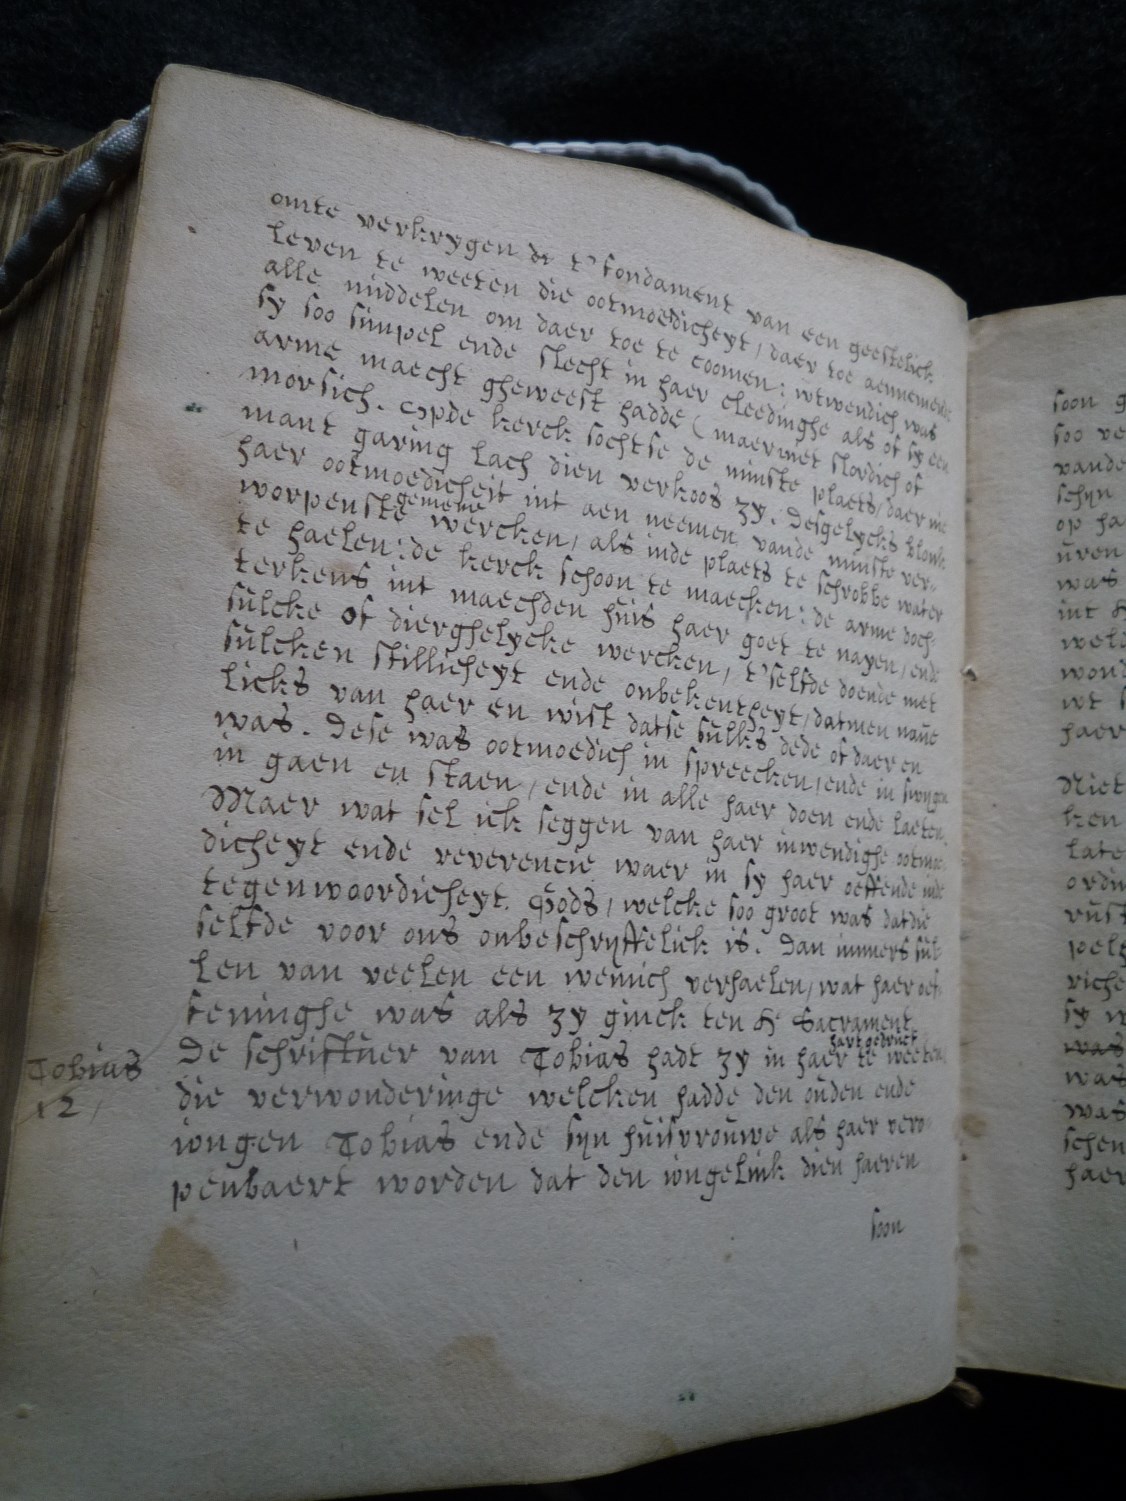 omte verkrygen dt t'fondament van een geestelick
leven te weeten die ootmoedicheyt, daer toe aennemende
alle middelen om daer toe te coomen: wtwendich was
sy soo simpel ende slecht in haer cleedinghe als of sy een
arme maecht gheweest hadde (maer niet slordich of
morsich. Opde kerck sochtse de minste plaets, daer nie
mant garing lach dien verkoos zy. Desgelycks blonk
haer ootmoedicheit int aen neemen vande minste ver-
worpenste gemeene wercken, als inde plaets te schrobbe water
te haelen: de kerck schoon te maecken: de arme doch
terkens int maechden huis haer goet te nayen, ende
sulcke of dierghelycke wercken, t'selfde doende met
sulcken stillicheyt ende onbekentheyt, datmen naue
licks van haer en wist datse sulks dede of daer en
was. Dese was ootmoedich in spreecken, ende in swygen
in gaen en staen, ende in alle haer doen ende laeten.
Maer wat sel ick seggen van haer inwendighe ootmoe
dicheyt ende reverencie waer in sy haer oeffende inde
tegenwoordicheyt Gods, welcke soo groot was dat die
selfde voor ons onbeschryffelick is. Dan immers sul
len van veelen een weinich verhaelen, wat haer oef
feninghe was als zy ginck ten H Sacrament
hart gedruct
De schriftuer van Tobias hadt zy in haer te weeten
Tobias
12,
die verwonderinge welcken hadde den ouden ende
iongen Tobias ende syn huisvrouwe als haer vero
penbaert worden dat den iongelink dien haeren
soon
soon
soo
vande
schyn
op
uren
was
int H
wt
haer
Niet
ken
late
sy
was
was
was
schen
haer